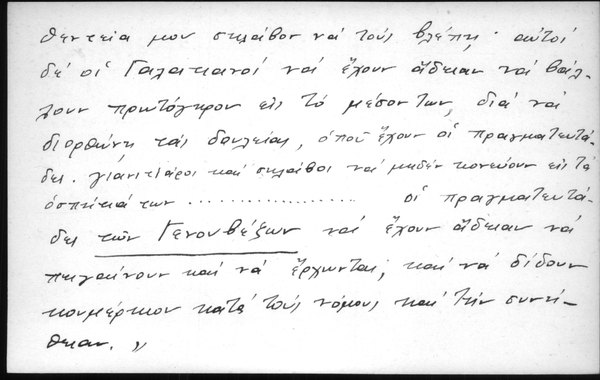 θεντεία μου σκλάβον νά τούς βλέπῃ· αὐτοί
δέ οἱ Γαλατιανοί νά ἔχουν ἄδειαν νά βάλ-
λουν πρωτόγηρον εἰς τό μέσον των, διά νά
διορθώνῃ τάς δουλείας, ὁποῦ ἔχουν οἱ πραγματευτά-
δες. γιανιτζάροι καί σκλάβοι νά μηδέν κονεύουν εἰς τά
ὁσπήτιά των .................... οἱ πραγματευτά-
δες τῶν Γενουβέζων νά ἔχουν ἄδειαν νά
πηγαίνουν καί νά ἔρχωνται, καί νά δίδουν
κουμέρκιον κατά τούς νόμους καί τήν συνή-
θειαν. »